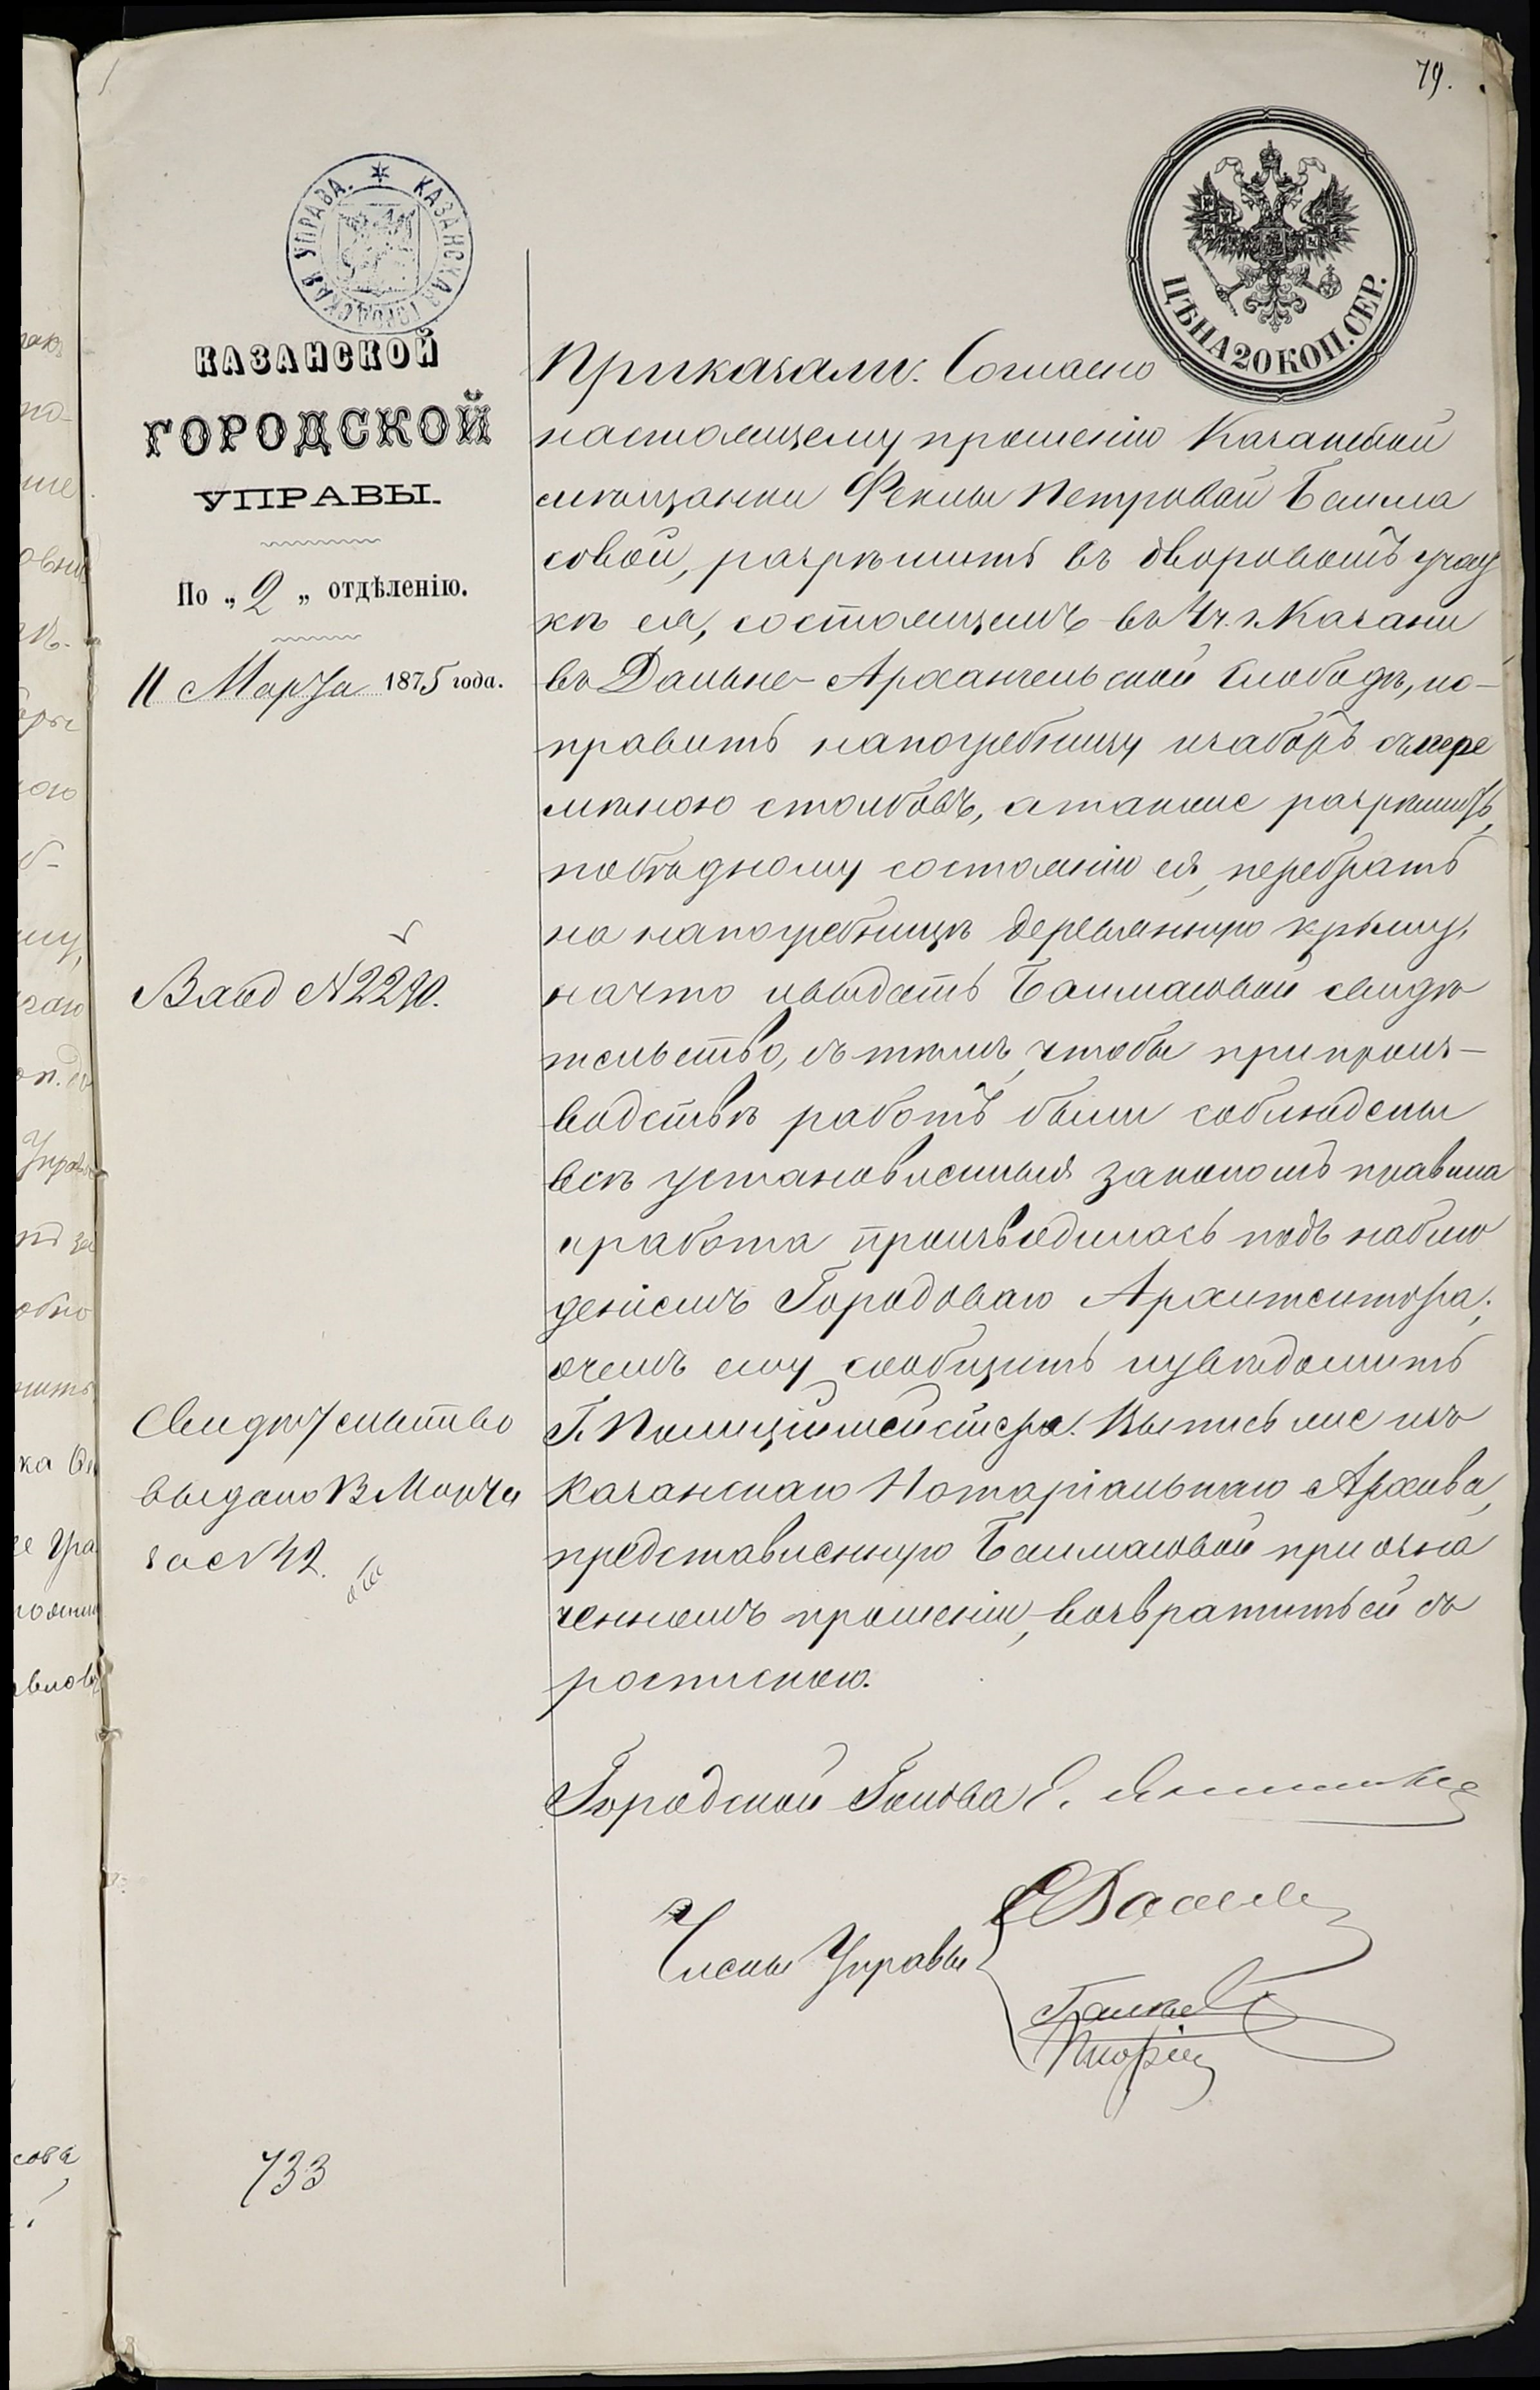 79.
КАЗАНСКАЯ ГОРОДСКАЯ УПРАВА.
ЦѢНА 20 КОП. СЕР.
КАЗАНСКОЙ
ГОРОДСКОЙ
УПРАВЫ.
По „ 2 „ отдѣленію.
11 Марта 1875 года.
Вход № 2290.
Свидѣтельство
выдано 13 Марта
за № 42.
733
Приказали: Согласно
настоящему прошенію Казанской
мѣщанки Феклы Петровой Башма
совой, разрѣшить въ дворовомъ учас
кѣ ея, состоящемъ въ 4 ч. г. Казани
въ Дальне-Архангельской Слободѣ, ис-
править напогребницу и заборъ съ пере
мѣною столбовъ, а также разрѣшить,
по бѣдному состоянію ея, перебрать
на напогребницѣ деревянную крышу,
на что и выдать Башмасовой свидѣ
тельство, съ тѣмъ, чтобы при произ-
водствѣ работъ были соблюдены
всѣ установленныя закономъ правила
и работа производилась подъ наблю
деніемъ Городоваго Архитектора;
о чемъ ему сообщить и увѣдомить
Г. Полиціймейстера. Выпись же изъ
Казанскаго Нотаріальнаго Архива,
представленную Башмасовой при озна
ченномъ прошеніи, возвратить ей съ
роспискою.
Городской Голова Э. Янишевскій
Члены Управы